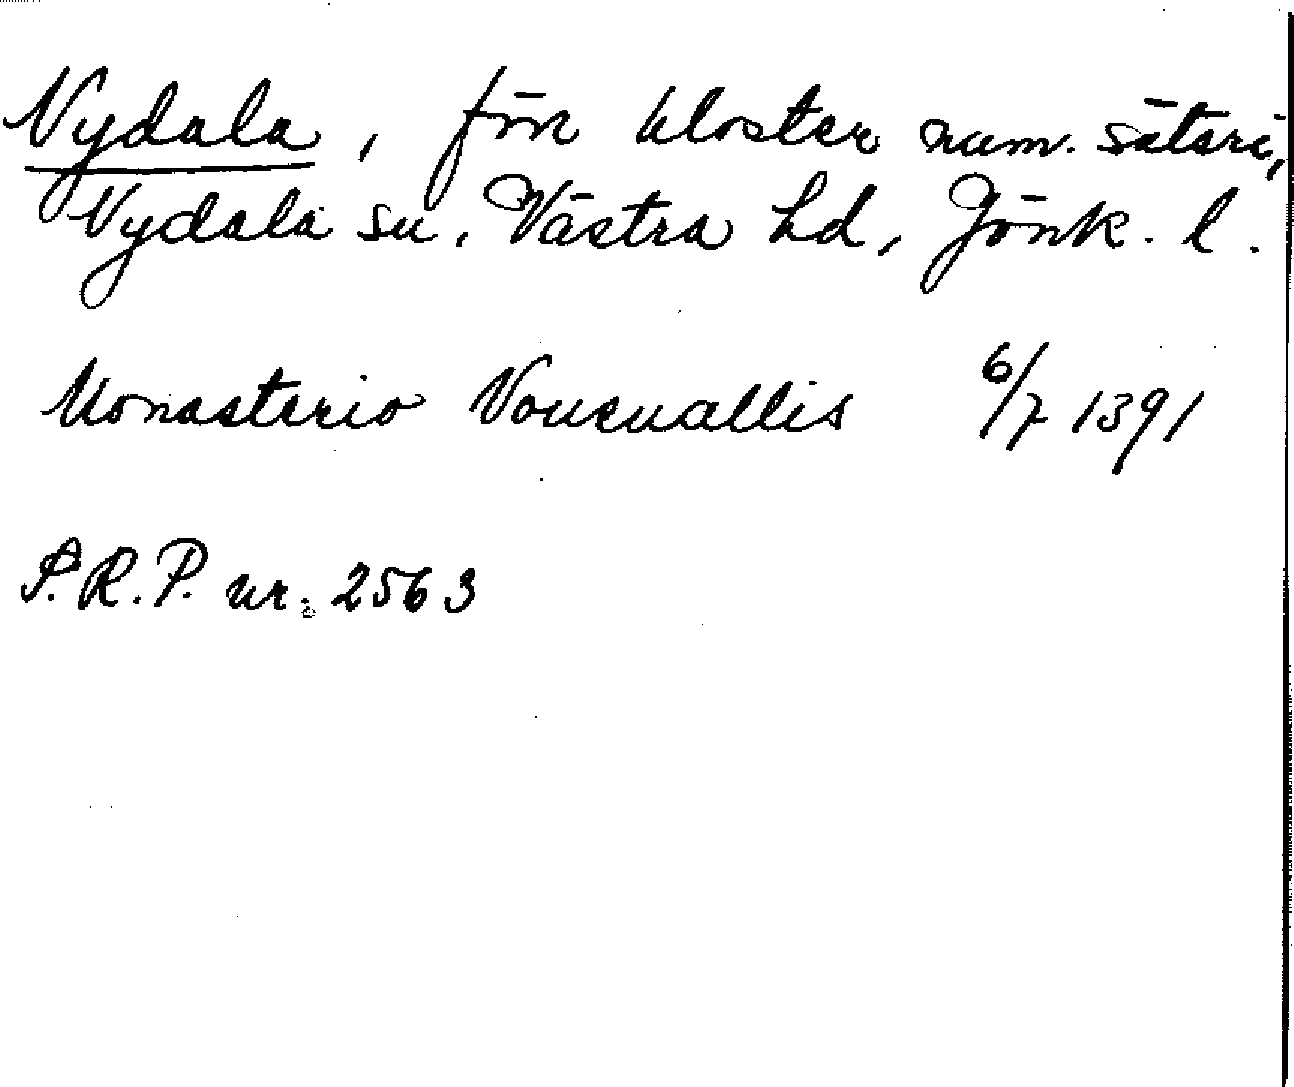 Nydala, förr kloster num. säteri,
Nydala sn, Västra hd, Jönk. l.
Monasterio Noueuallis 6/7 1391
S.R.P. nr. 2563